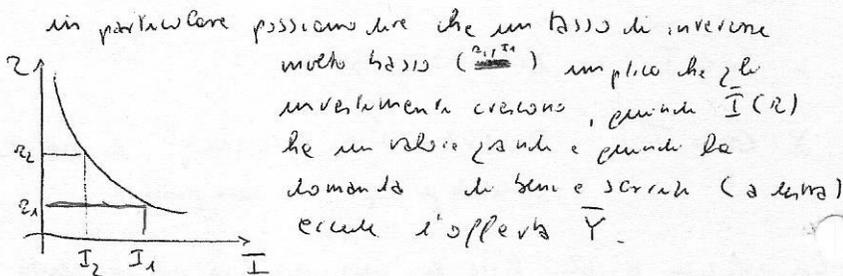 in particolare possiamo dire che un tasso di interesse
molto basso (r₁, I₁) implica che gli
investimenti crescono, quindi Ī(r)
ha un valore grande e quindi la
domanda di beni e servizi (a destra)
eccede l'offerta Ȳ.
r
r₂
r₁
I₂ I₁ Ī